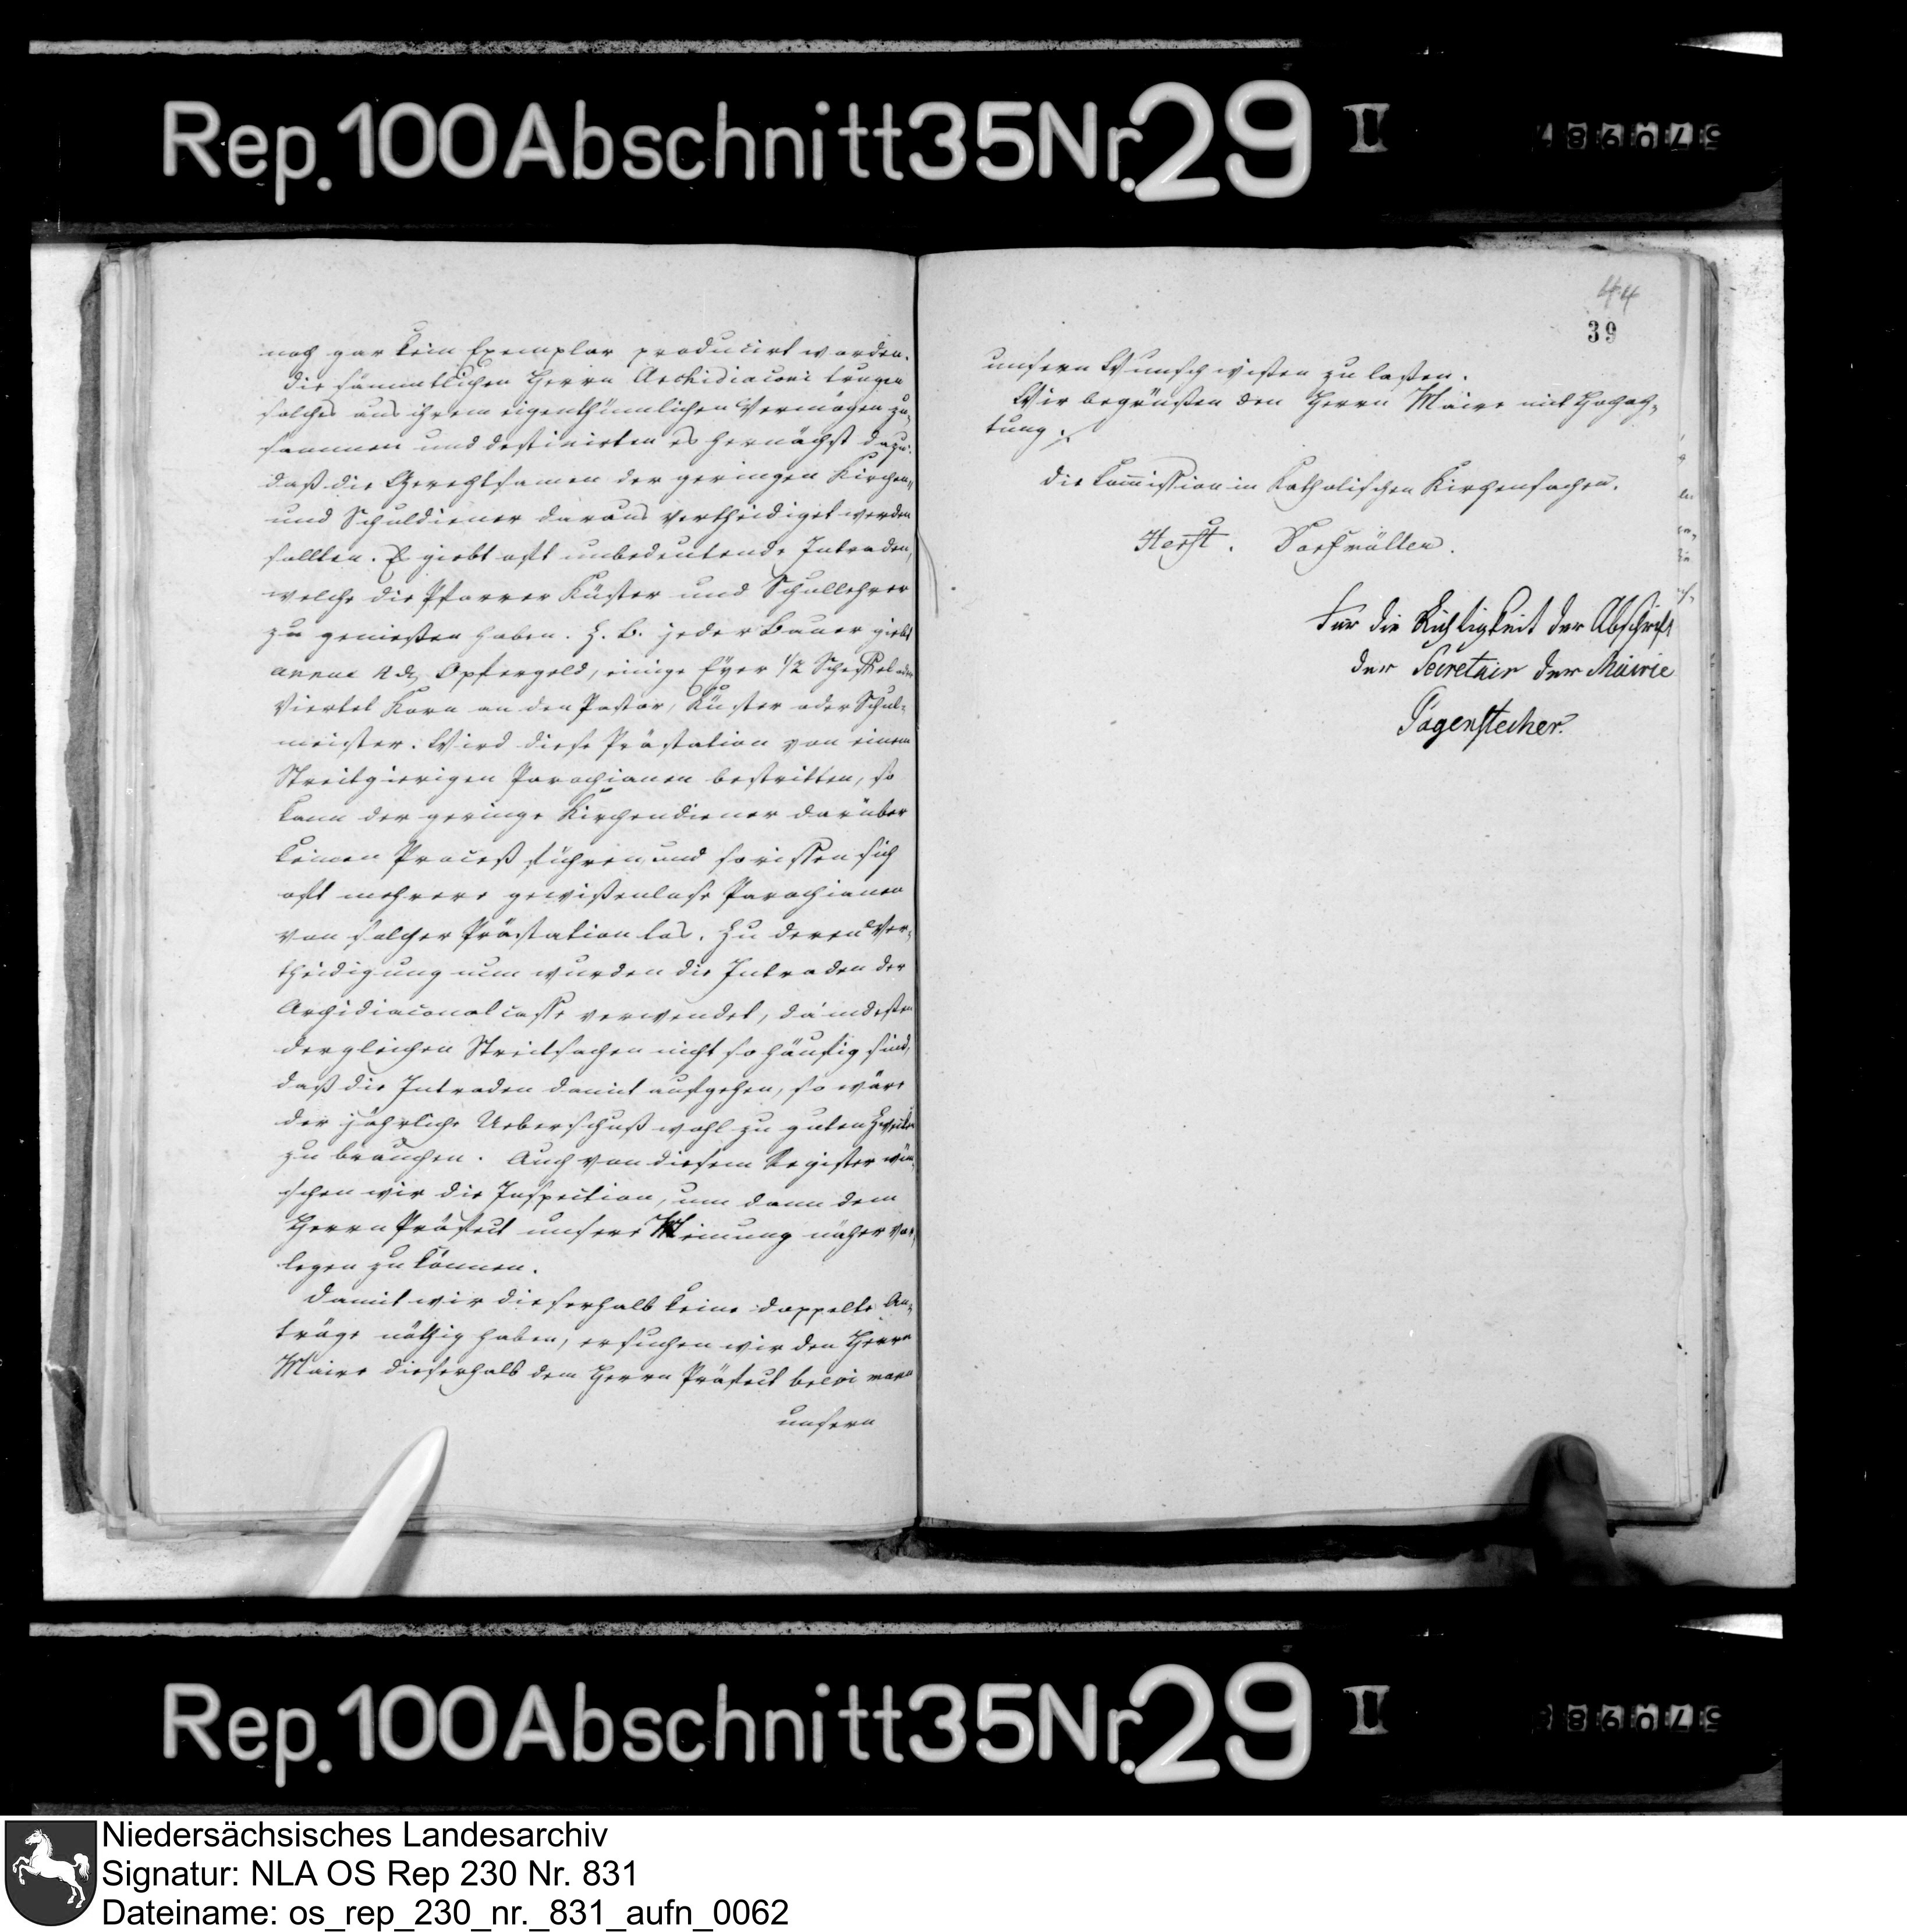 Rep. 100 Abschnitt 35 Nr. 29 II
noch gar kein Exemplar producirt worden.
Die sämmtlichen Herrn Archidiaconi trugen
solches aus ihrem eigenthümlichen Vermögen zu-
sammen und destinirten es hernächst dazu:
daß die Gerechtsamen der geringen Kirchen-
und Schuldiener daraus vertheidiget werden
sollten. Es giebt oft unbedeutende Intraden,
welche die Pfarrer Küster und Schullehrer
zu genießen haben. Z. B. jeder Bauer giebt
Opfergeld, einige Eyer 1/2 Scheffel oder
Viertel Korn an den Pastor, Küster oder Schul-
meister. Wird diese Prästation von einem
Streitgierigen Parochianen bestritten, so
kann der geringe Kirchendiener darüber
keinen Proceß führen, und so rissen sich
oft mehrere gewißenlose Parochianen
von solcher Prästation los. Zu deren Ver-
theidigung nun wurden die Intraden der
Archidiaconalcasse verwendet, da indeßen
dergleichen Streitsachen nicht so häufig sind,
daß die Intraden damit aufgehen, so wäre
der jährliche Ueberschuß wohl zu guten Zwecken
zu brauchen. Auch von diesem Register wün-
schen wir die Inspection, um dann dem
Herrn Präfect unsere Meinung näher vor-
legen zu können.
Damit wir dieserhalb keine doppelte An-
träge nöthig haben, ersuchen wir den Herrn
Maire dieserhalb dem Herrn Präfect brevi manu
unsern
44
39
unsern Wunsch wißen zu laßen.
Wir begrüßen den Herrn Maire mit Hochach-
tung.
Die Commission in Katholischen Kirchensachen.
Herft. Dorfmüller.
Für die Richtigkeit der Abschrift
der Secretair der Mairie
Pagenstecher.
Rep. 100 Abschnitt 35 Nr. 29 II
Niedersächsisches Landesarchiv
Signatur: NLA OS Rep 230 Nr. 831
Dateiname: os_rep_230_nr._831_aufn_0062